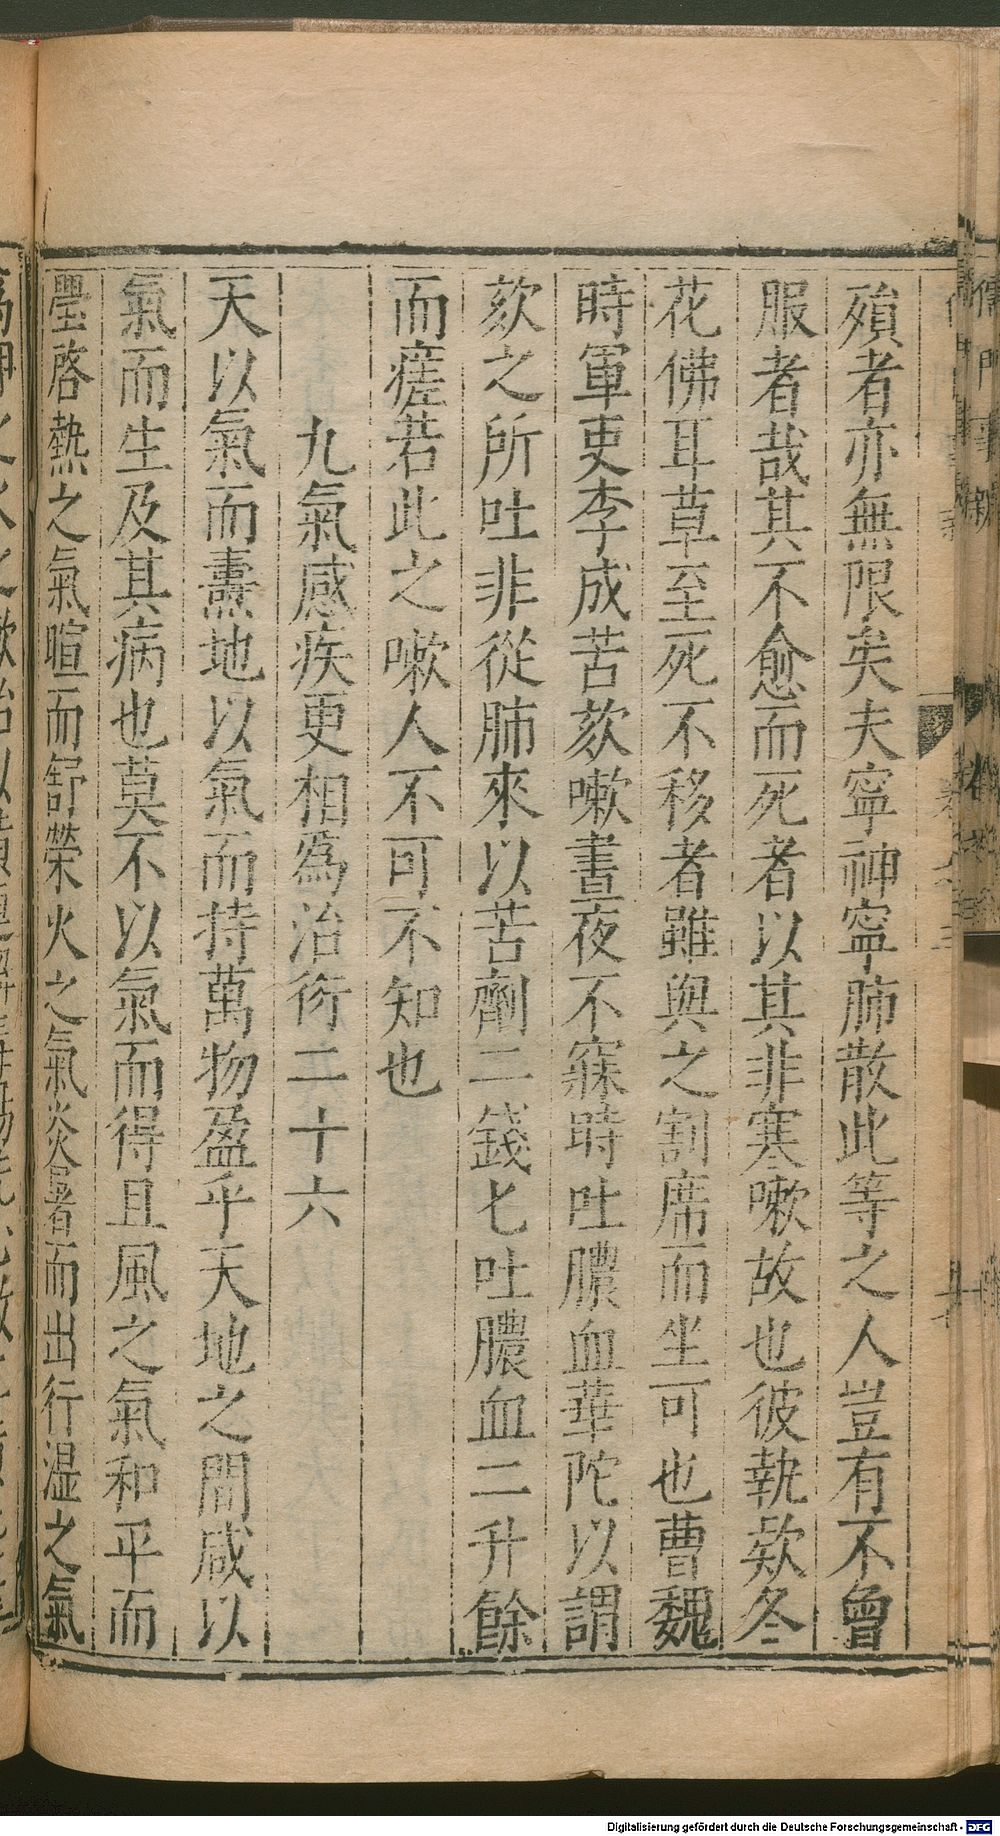 殞者亦無限矣夫寧神寧肺散此等之人豈有不曾
服者哉其不愈而死者以其非寒嗽故也彼執欵冬
花佛耳草至死不移者雖與之割席而坐可也曹魏
時軍吏李成苦欬嗽晝夜不寐時吐膿血華陀以謂
欬之所吐非從肺來以苦劑二錢匕吐膿血二升餘
而瘥若此之嗽人不可不知也
九氣感疾更相爲治衍二十六
天以氣而燾地以氣而持萬物盈乎天地之間咸以
氣而生及其病也莫不以氣而得且風之氣和平而
璺啓熱之氣暄而舒榮火之氣炎暑而出行湿之氣
儒門事親
Digitalisierung gefördert durch die Deutsche Forschungsgemeinschaft - DFG